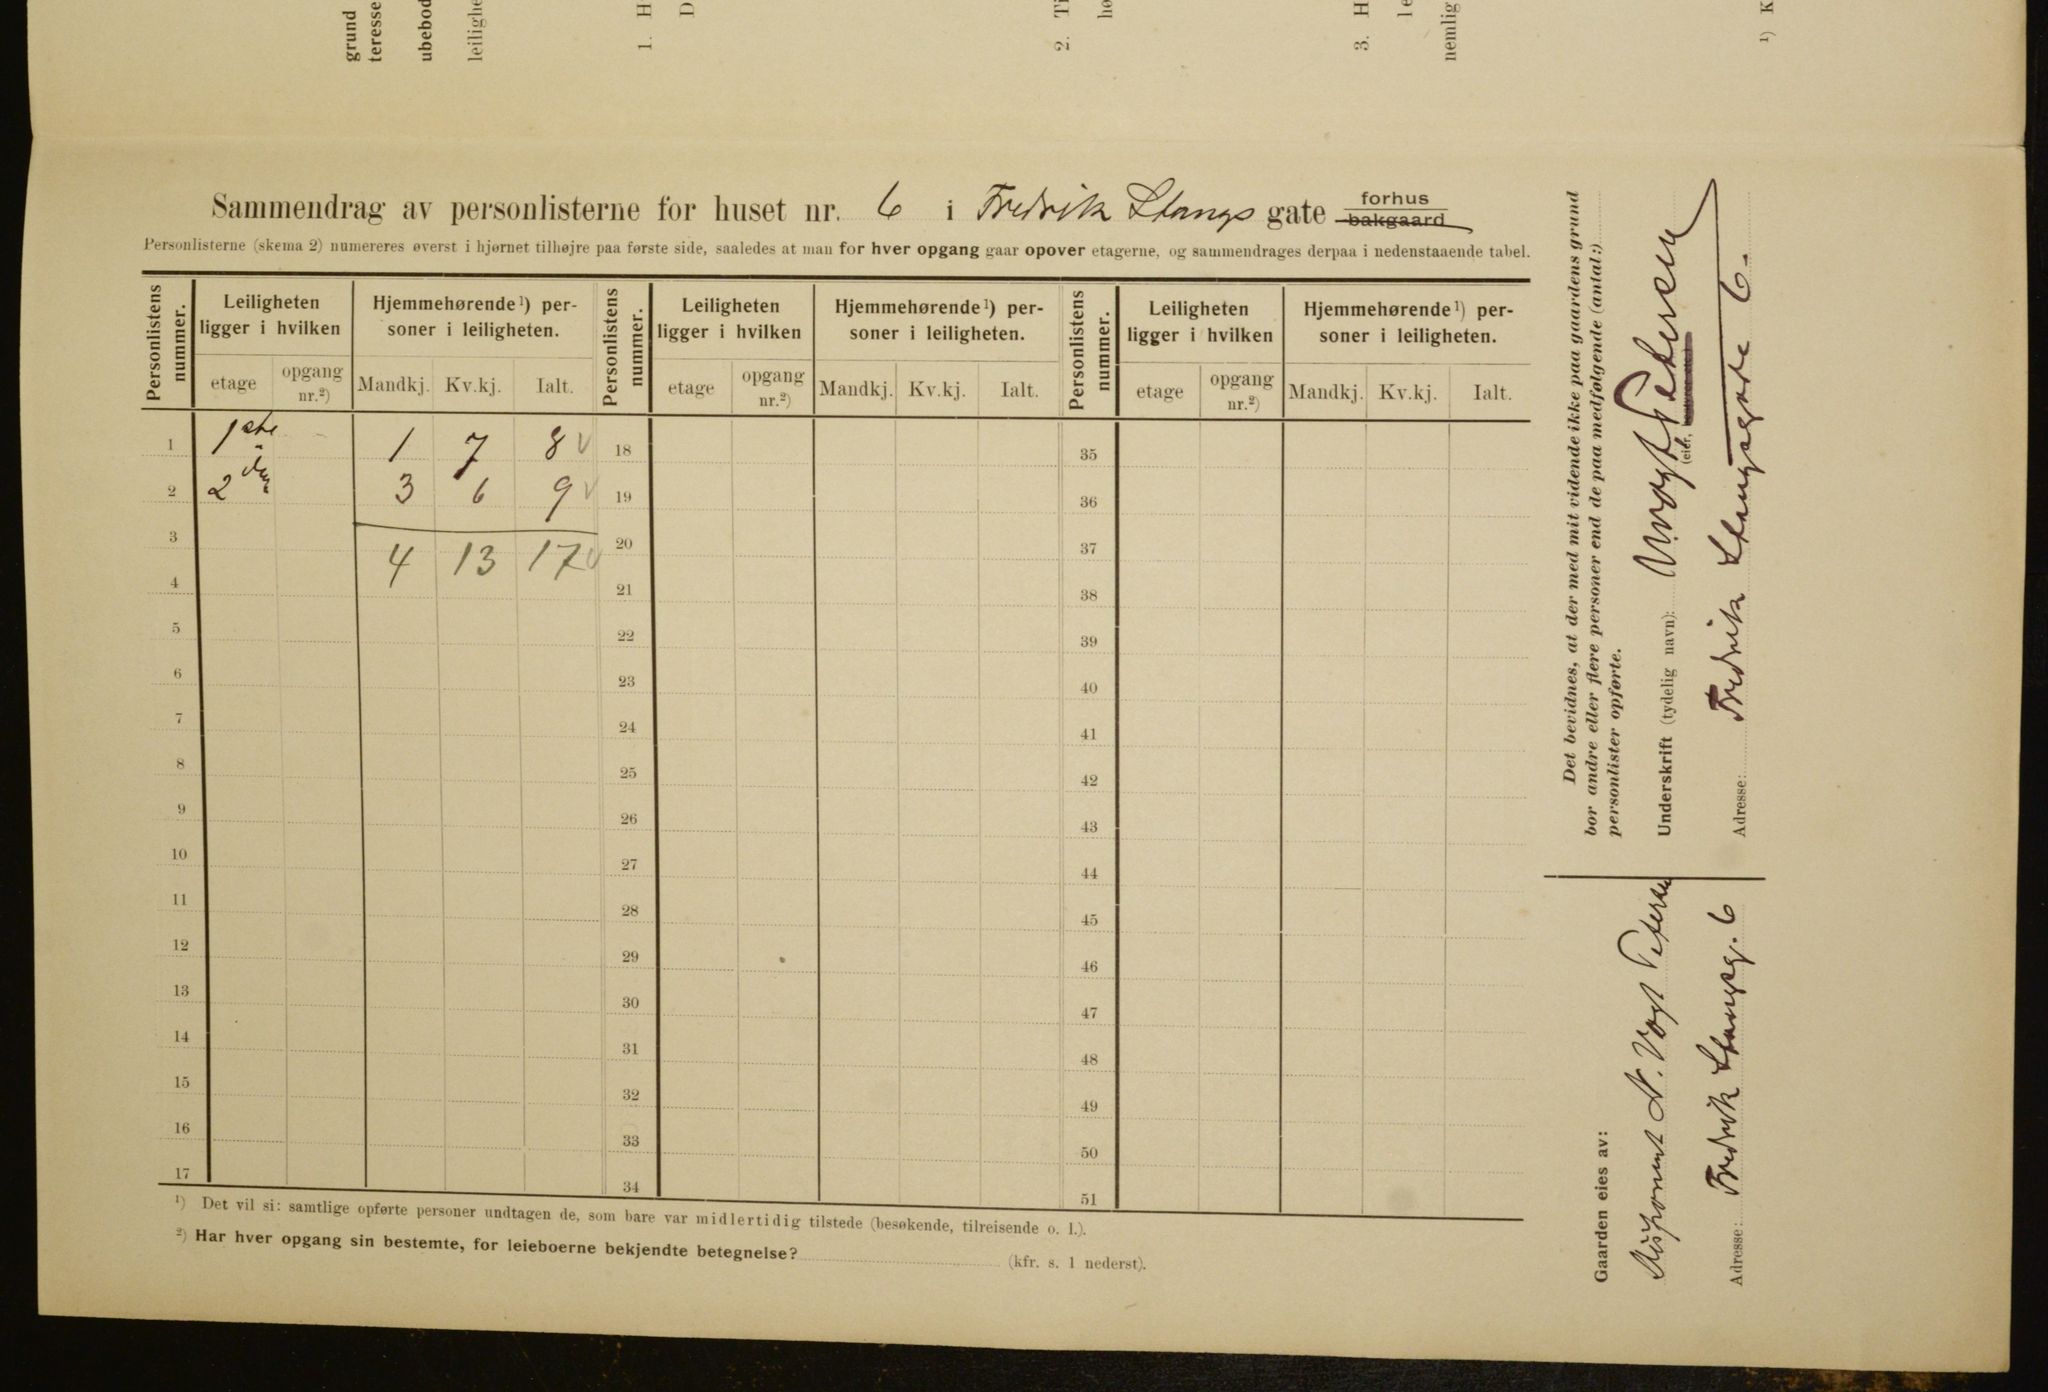 grund
teresse
ubebod
leilighe
1. H
D
2. Ti
hø
3. H
le
nemlig
¹) K
Sammendrag av personlisterne for huset nr. 6 i Fredrik Stangs gate forhus
bakgaard
Personlisterne (skema 2) numereres øverst i hjørnet tilhøjre paa første side, saaledes at man for hver opgang gaar opover etagerne, og sammendrages derpaa i nedenstaaende tabel.
Personlistens nummer. Leiligheten ligger i hvilken Hjemmehørende ¹) personer i leiligheten. Personlistens nummer. Leiligheten ligger i hvilken Hjemmehørende ¹) personer i leiligheten. Personlistens nummer. Leiligheten ligger i hvilken Hjemmehørende ¹) personer i leiligheten.
etage opgang nr.²) Mandkj. Kv.kj. Ialt. etage opgang nr.²) Mandkj. Kv.kj. Ialt. etage opgang nr.²) Mandkj. Kv.kj. Ialt.
1 1ste 1 7 8 18 35
2 2den 3 6 9 19 36
3 4 13 17 20 37
4 21 38
5 22 39
6 23 40
7 24 41
8 25 42
9 26 43
10 27 44
11 28 45
12 29 46
13 30 47
14 31 48
15 32 49
16 33 50
17 34 51
¹) Det vil si: samtlige opførte personer undtagen de, som bare var midlertidig tilstede (besøkende, tilreisende o. l.).
²) Har hver opgang sin bestemte, for leieboerne bekjendte betegnelse? (kfr. s. 1 nederst).
Det bevidnes, at der med mit vidende ikke paa gaardens grund
bor andre eller flere personer end de paa medfølgende (antal:)
personlister opførte.
Underskrift (tydelig navn): N. Vogt Petersen
(eier,
Adresse: Fredrik Stangsgate 6.
Gaarden eies av:
Disponent N. Vogt Petersen
Adresse: Fredrik Stangsg. 6